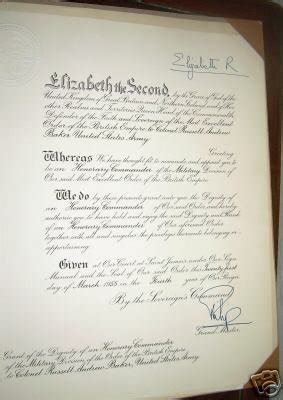 Elizabeth R
Elizabeth the Second, by the Grace of God of the
United Kingdom of Great Britain and Northern Ireland and of Her
other Realms and Territories Queen, Head of the Commonwealth,
Defender of the Faith and Sovereign of the Most Excellent
Order of the British Empire to Colonel Russell Andrew
Baker, United States Army
Greeting
Whereas We have thought fit to nominate and appoint you to
be an Honorary Commander of the Military Division of
Our said Most Excellent Order of the British Empire
We do by these presents grant unto you the Dignity of
an Honorary Commander of Our said Order and hereby
authorise you to have hold and enjoy the said Dignity and Rank
of an Honorary Commander of Our aforesaid Order
together with all and singular the privileges thereunto belonging or
appertaining.
Given at Our Court at Saint James's under Our Sign
Manual and the Seal of Our said Order this Twenty first
day of March 1955 in the Fourth year of Our Reign
By the Sovereign's Command
Grand Master
Grant of the Dignity of an Honorary Commander
of the Military Division of the Order of the British Empire
to Colonel Russell Andrew Baker, United States Army